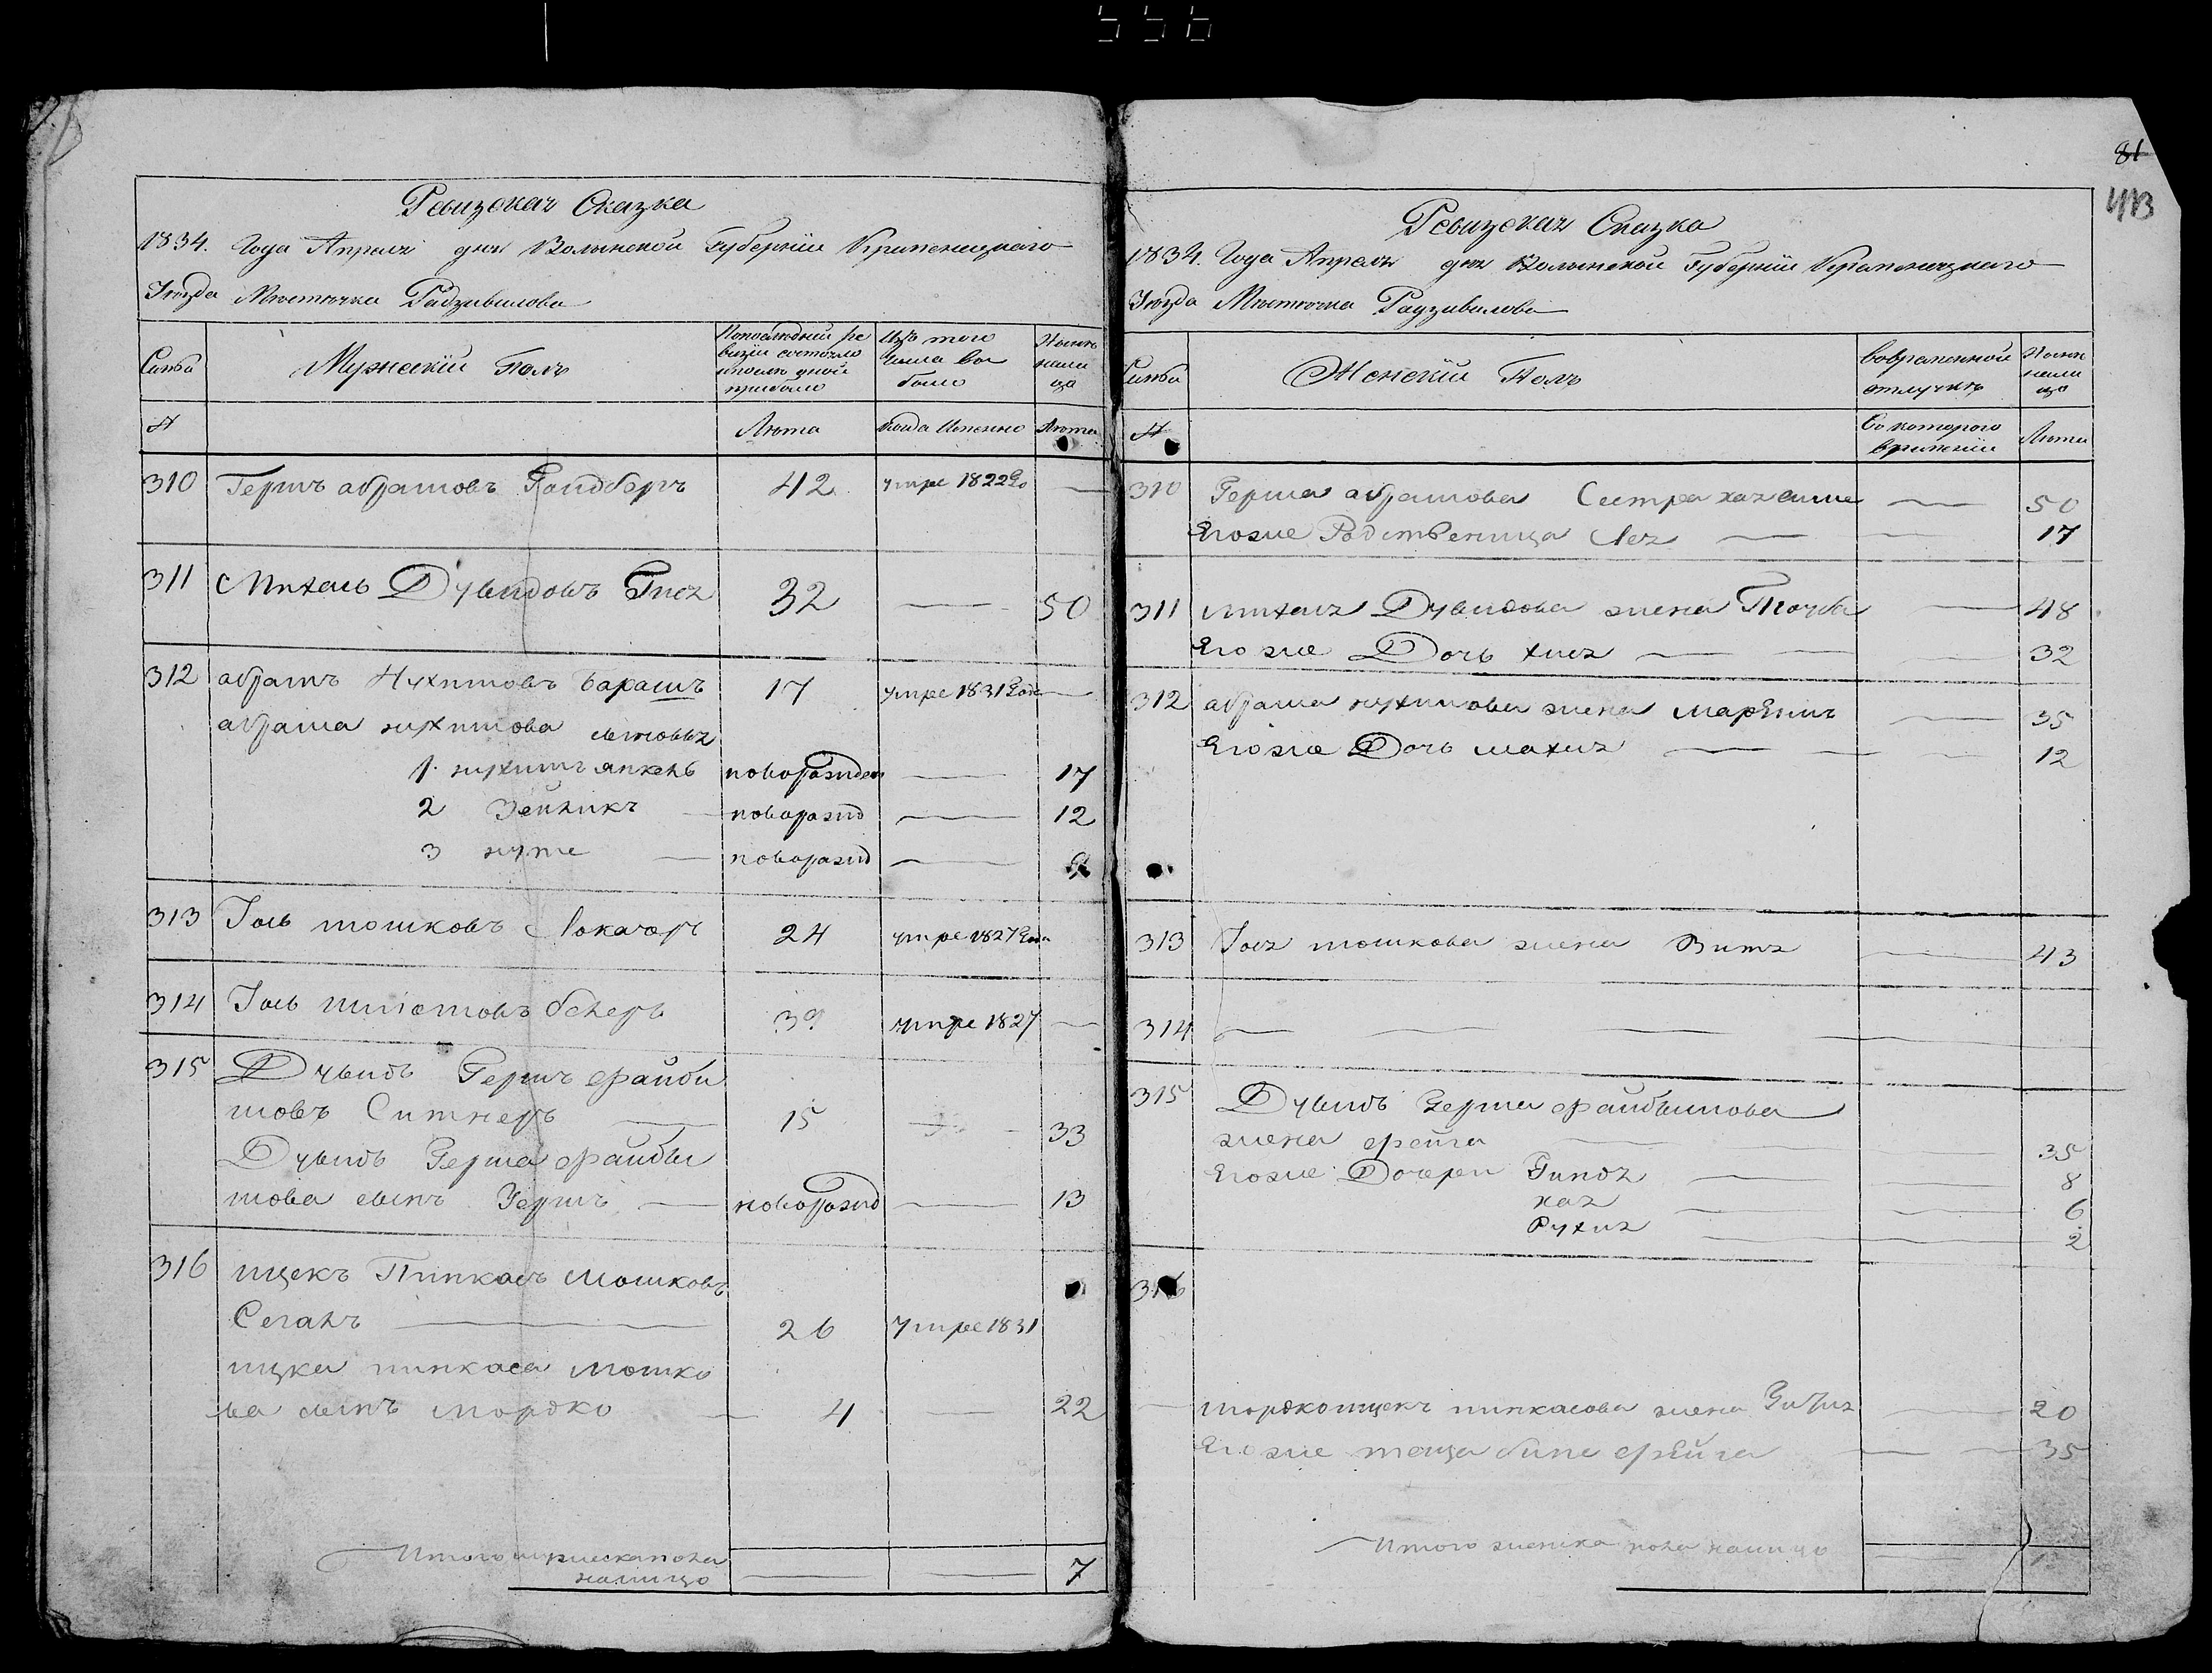 Ревизская Сказка
1834. Года Апреля дня Волынской Губернїи Кременецкаго
Уезда Местечка Радзивилова
Семьи
Мужескїй Полъ
По последней ре
визїи состояло
и после оной
прибыло
Изъ того
числа вы
было
Ныне
нали
цо
№
Лета
Когда Именно
Лета
310 Гершъ абрамовъ 42 умре 1822 Го —
311 Михель Дувидовъ 32 — 50
312 абрамъ Нухимовъ барашъ 17 умре 1831 Года —
абрама нухимова сыновья
1. нухимъ янкель новорожден — 17
2 Зейликъ — новорожд — 12
3 нуте — новорожд — 9
313 Іось мошковъ 24 умре 1827 Года
314 Іось 39 умре 1827 —
315 Дувидъ Гершъ файви
шовъ Ситнеръ — 15 — 33
Дувидъ Герша файви
шова сынъ Гершъ — новорожд — 13
316 ицекъ Пинкасъ Мошковъ
Сеганъ — 26 Умре 1831
ицка пинкаса мошко
ва сынъ мордко — 4 — 22
Итого мужеска пола
налицо — — 7
81
413
Ревизская Сказка
1834. Года Апреля дня Волынской Губернїи Кременецкаго
Уезда Местечка Радзивилова
Семьи
Женскїй Полъ
Во временной
отлучке
Ныне
нали
цо
№
Со которого
времении
Лета
310 Герша абрамова Сестра — 50
Егоже Родственица Лея — — 17
311 михеля Дувидова жена Тауба — 48
Егоже Дочь хися — — — 32
312 абрама нухимова жена — 35
Егоже Дочь махля — — — 12
313 Іося мошкова жена Витя — 43
314 — — — —
315 Дувидъ Герша файвишова
жена фейга — — 35
Егоже Дочери Гиндя — — 8
хая — — 6
Рухля — — 2
316
— мордко ицекъ пинкасова жена — 20
Егоже теща бине фейга — — 35
Итого женска пола налицо —